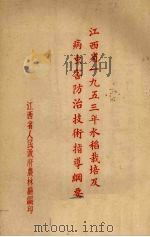 江西省一九五三年水稻栽培及
病虫害防治技術指導綱要
江西省人民政府農林廳編印